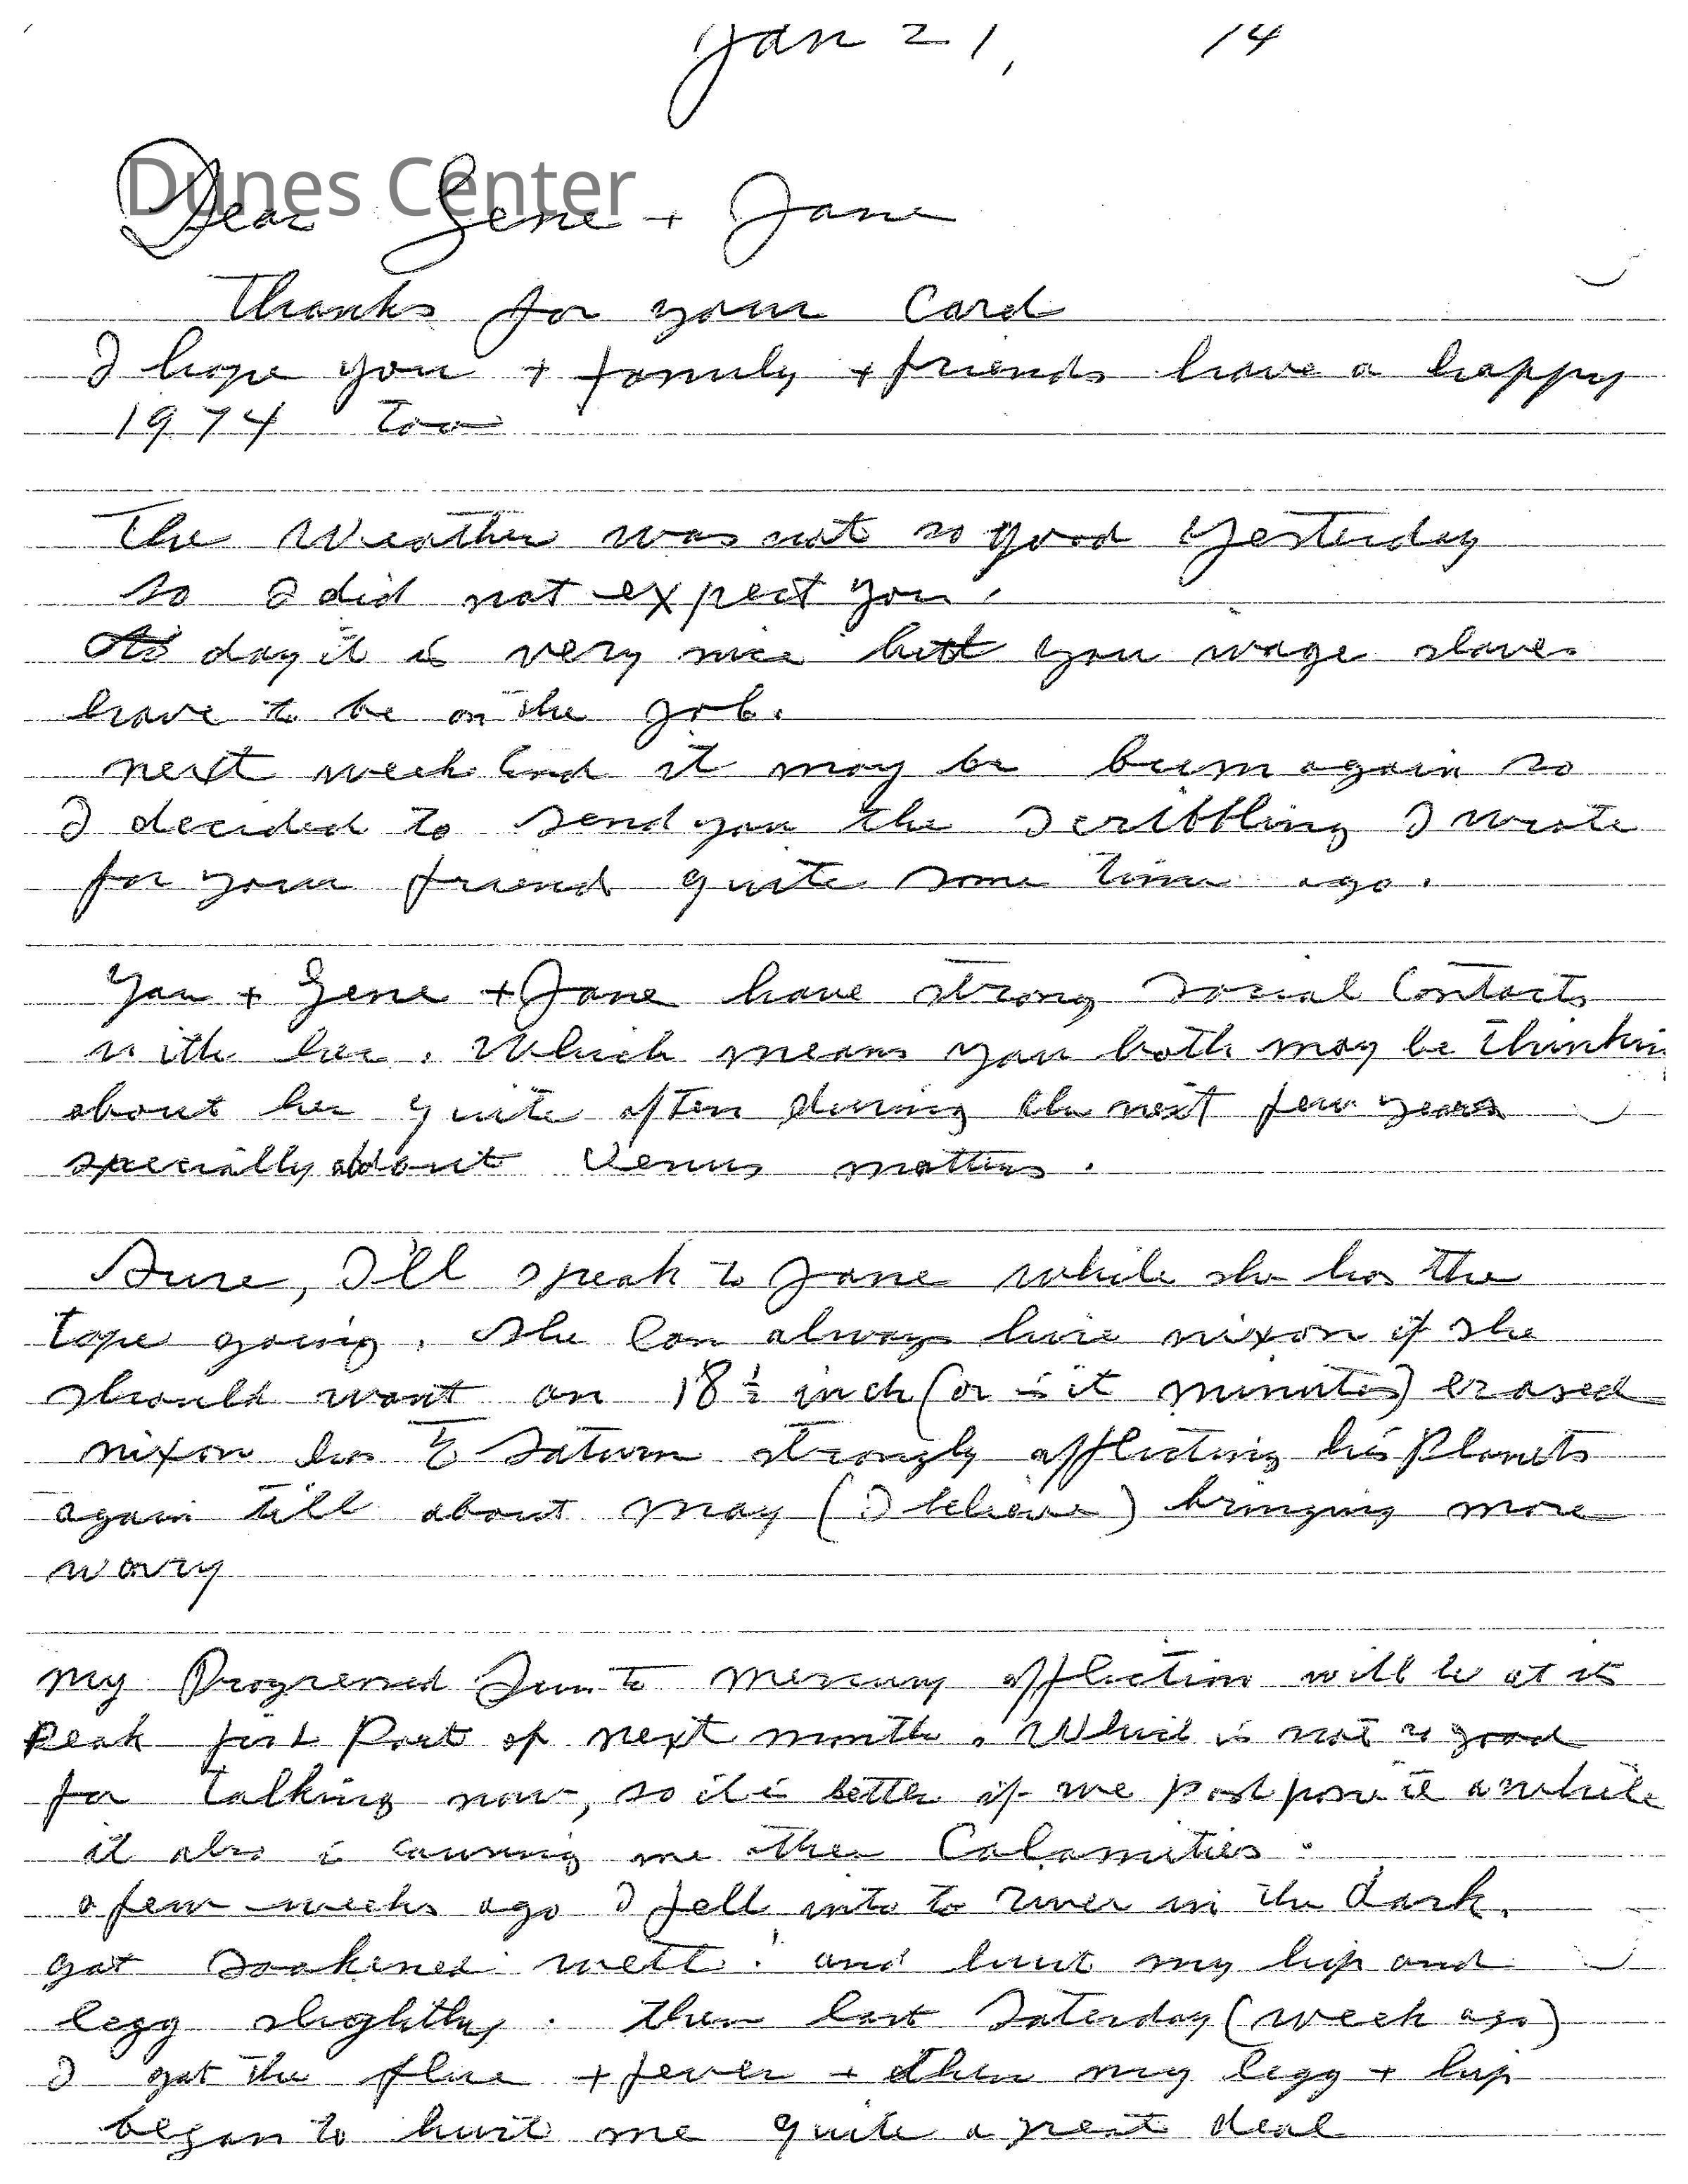 Jan 21, 14
Dunes Center
Dear Gene + Jane
Thanks for your Card
I hope you + family + friends have a happy
1974 too
The Weather was not so good yesterday
so I did not expect you.
day it is very nice but you wage slaves
have to be on the job.
next week end it may be bum again so
I decided to send you the scribbling I wrote
for your friend quite some time ago.
You + Gene + Jane have strong social Contacts
with her. Which means you both may be thinkin
about her quite often during the next few years
specially about Venus matters.
Sure, I'll speak to Jane while she has the
tape going. She Can always hire nixon if she
should want an 18 ½ inch (or is it minutes) erased
nixon has ♄ Saturn strongly afflicting his Planets
again till about May (I believe) bringing more
worry
My Progressed Sun to Mercury affliction will be at its
Peak first Part of next month. Which is not so good
for talking now, so it is better if we post pone it awhile
it also is causing me other Calamities.
a few weeks ago I fell into to river in the dark.
got soakened wett! and hurt my hip and
legg slightly. then last Saterday (week ago)
I got the flue + fever + then my legg + hip
began to hurt me quite a great deal